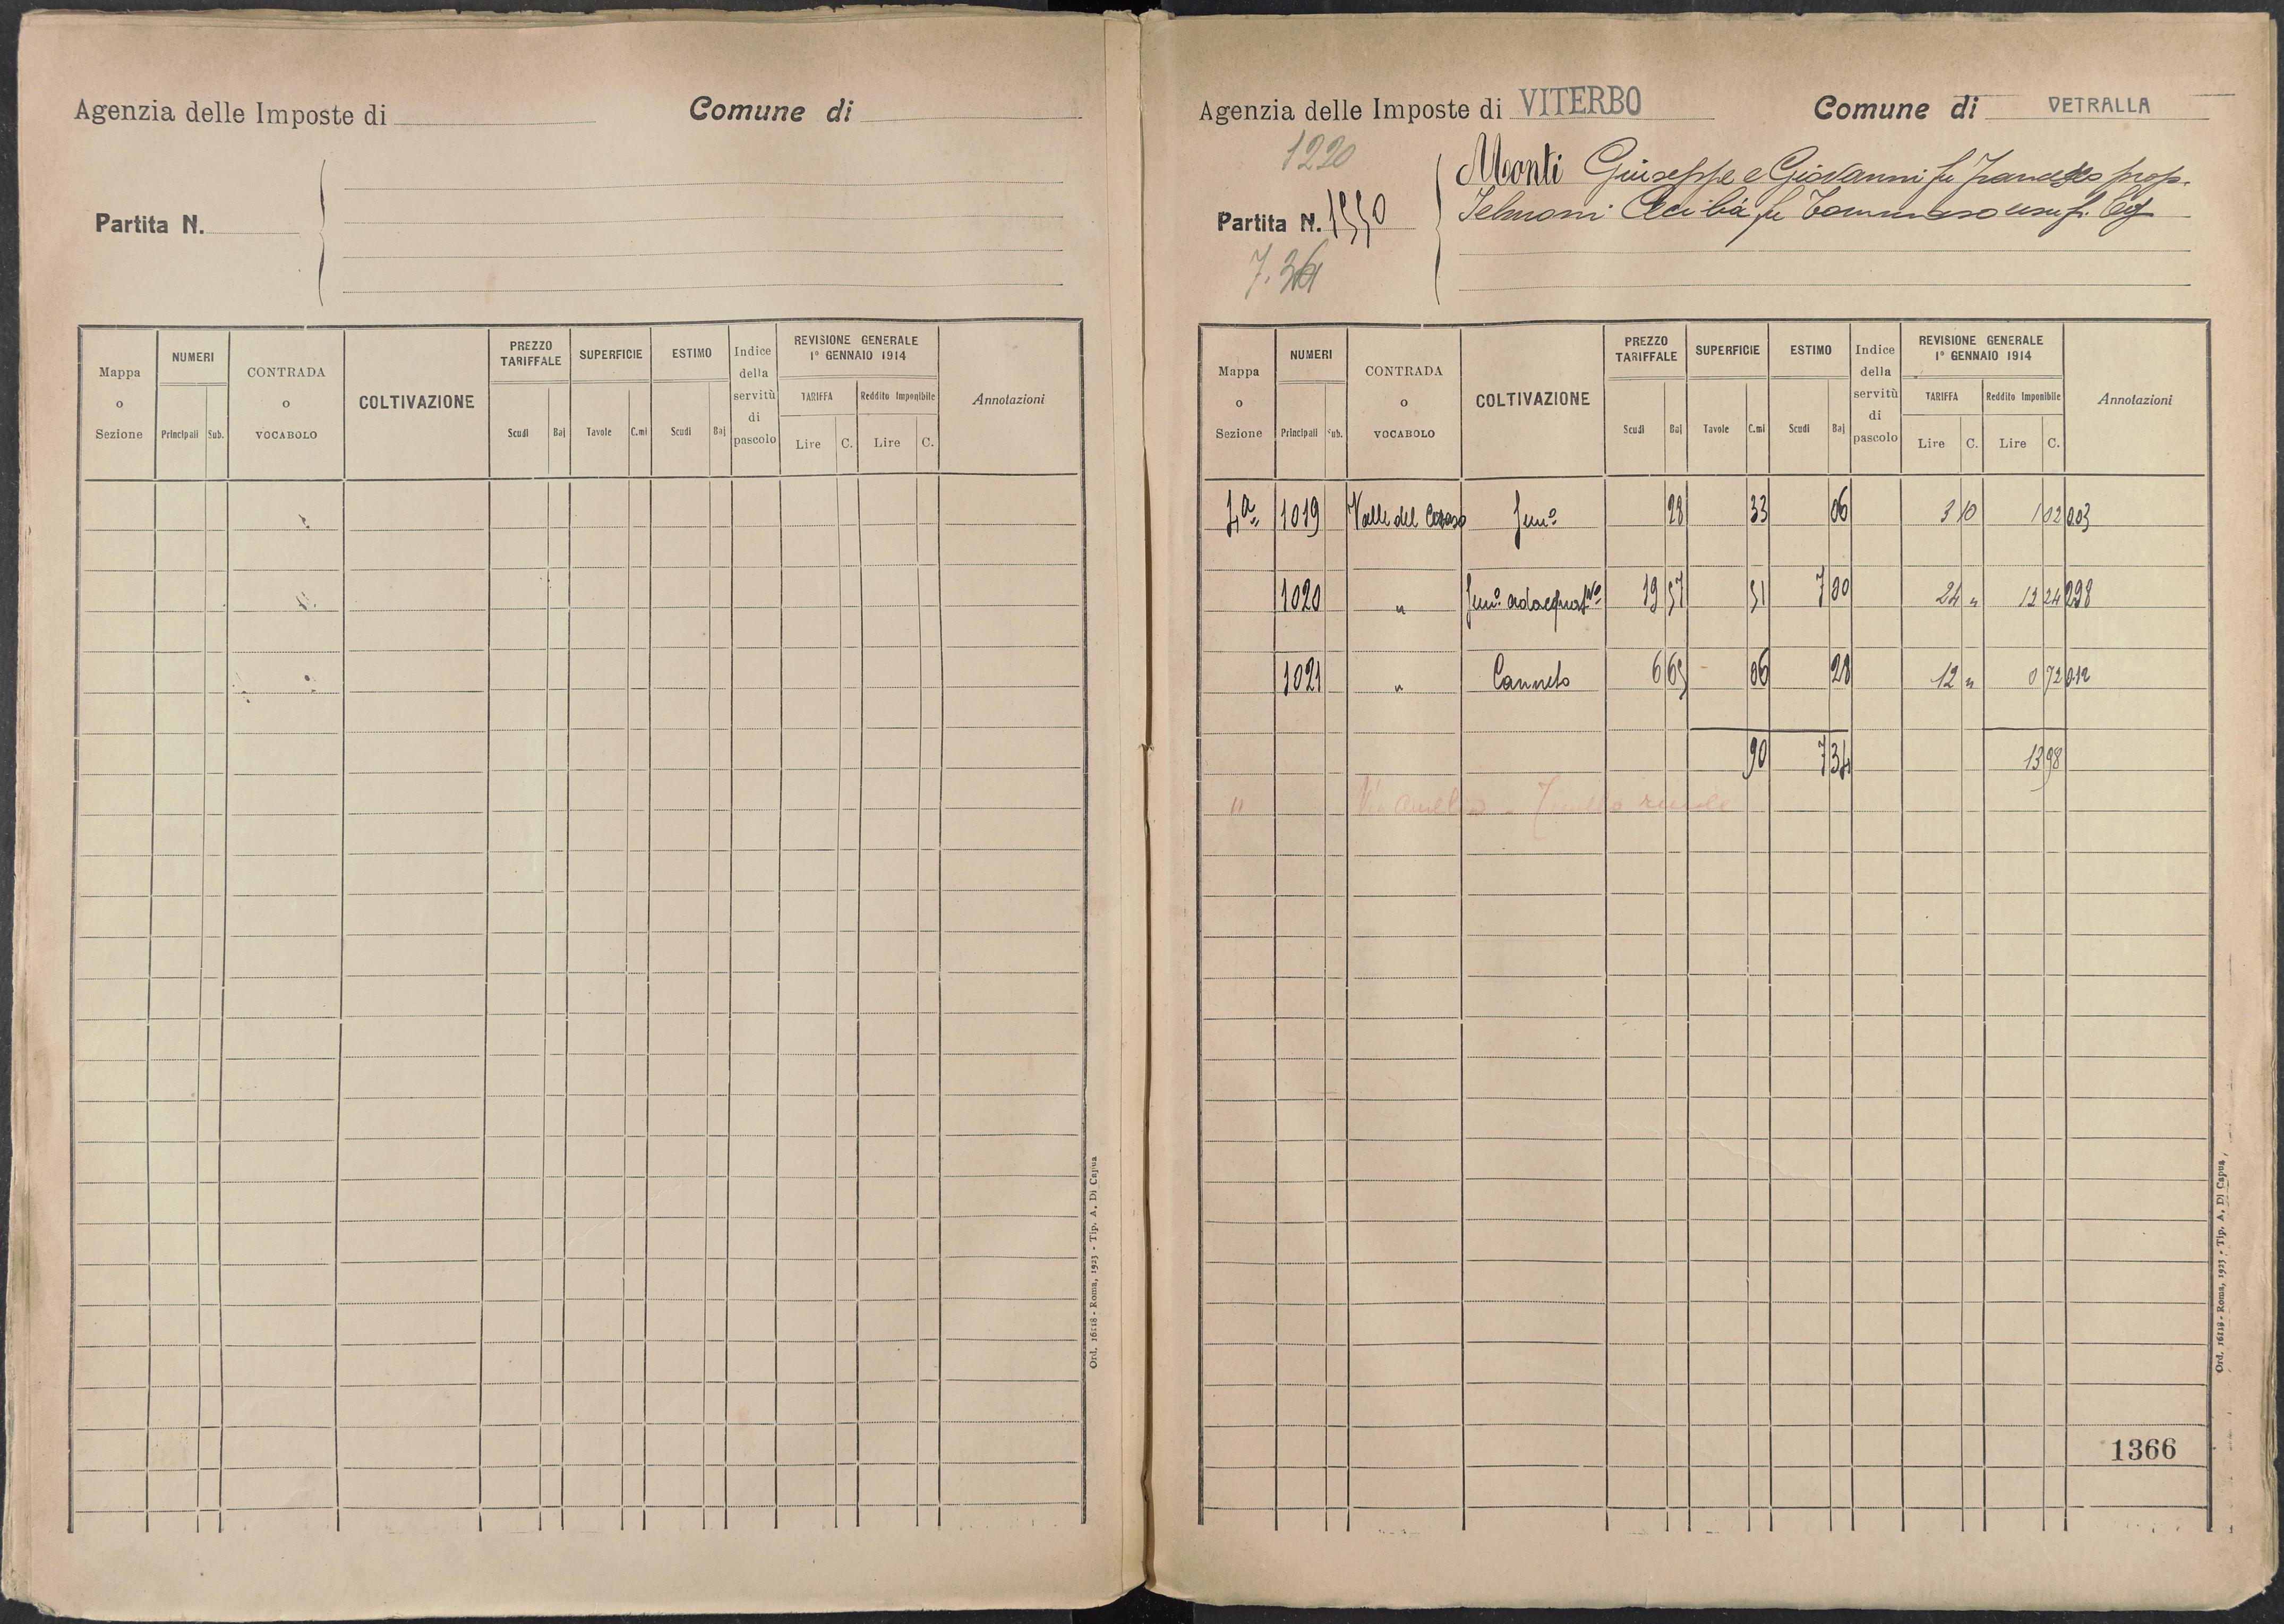 Agenzia delle Imposte di
Comune di
Partita N.
Mappa o Sezione
NUMERI
Principali
Sub.
CONTRADA o VOCABOLO
COLTIVAZIONE
PREZZO TARIFFALE
Scudi
Baj
SUPERFICIE
Tavole
C.mi
ESTIMO
Scudi
Baj
Indice della servitù di pascolo
REVISIONE GENERALE
1° GENNAIO 1914
TARIFFA
Reddito Imponibile
Lire
C.
Lire
C.
Annotazioni
Ord. 16118 - Roma, 1923 - Tip. A. Di Capua
Agenzia delle Imposte di VITERBO
Comune di VETRALLA
1220
Partita N. 1550
Monti Giuseppe e Giovanni fu Francesco prop.
Cecilia fu Tommaso usuf.
Mappa o Sezione
NUMERI
Principali
Sub.
CONTRADA o VOCABOLO
COLTIVAZIONE
PREZZO TARIFFALE
Scudi
Baj
SUPERFICIE
Tavole
C.mi
ESTIMO
Scudi
Baj
Indice della servitù di pascolo
REVISIONE GENERALE
1° GENNAIO 1914
TARIFFA
Reddito Imponibile
Lire
C.
Lire
C.
Annotazioni
1019 Valle del Semo 28 33 06 3 10 1 02 0.03
1020 " Semo adacquat 19 57 51 7 00 24 " 12 24 298
1021 " Canneto 6 65 06 28 12 " 0 72 0.12
90 7 34 13 98
" Via
1366
Ord. 16118 - Roma, 1923 - Tip. A. Di Capua